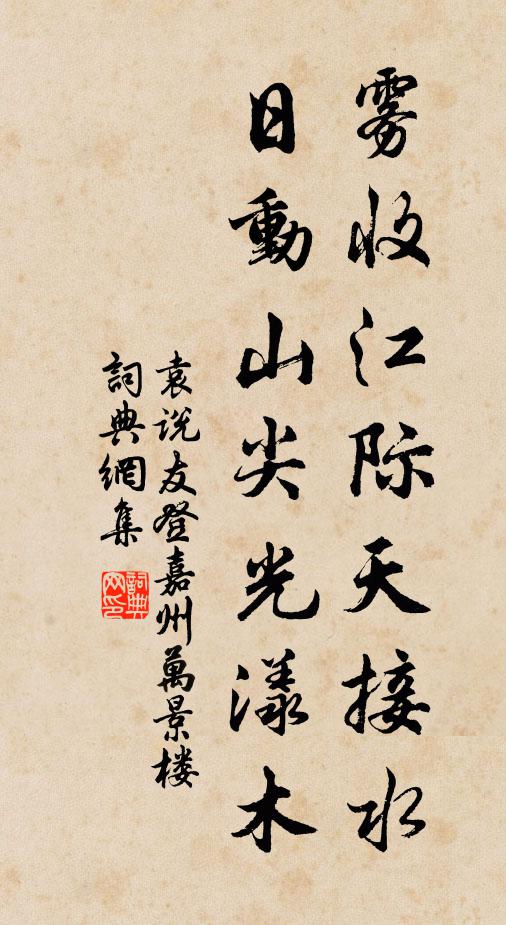 雾收江际天接水
日動山尖光漾木
袁说友登嘉州萬景楼
詞典網集
詞典网印